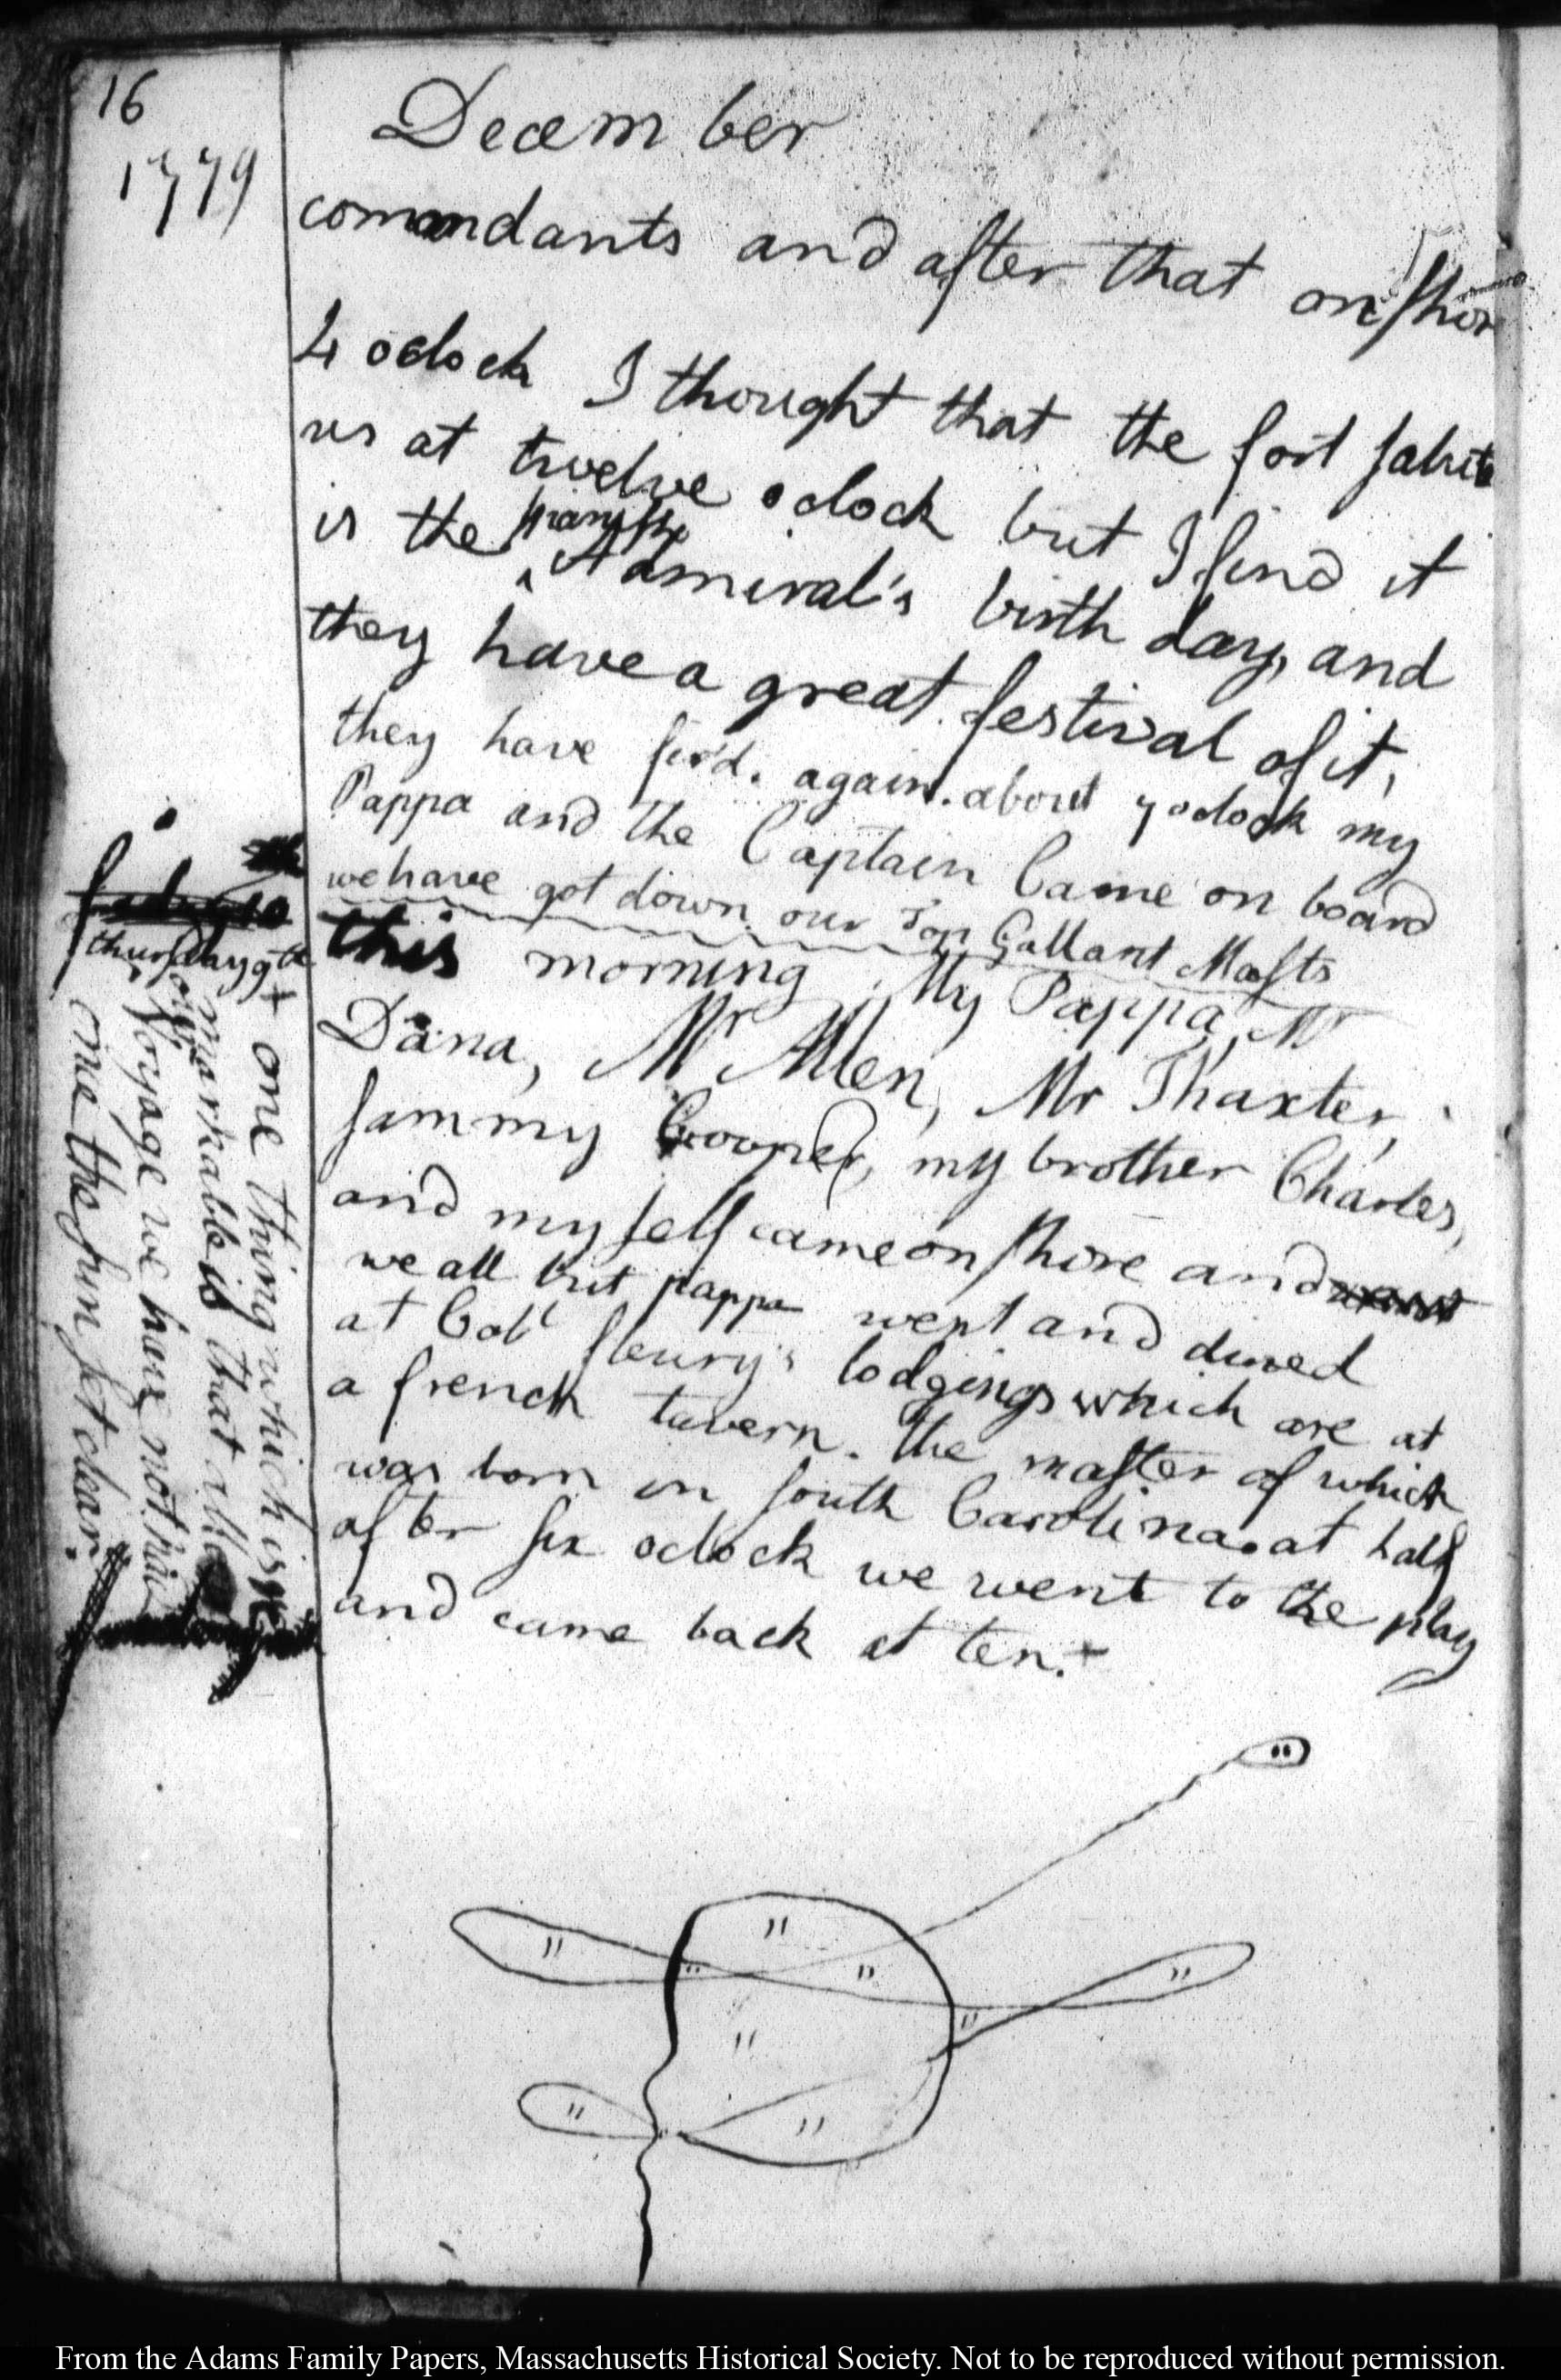 16
1779
December
comandants and after that on shore
4 oclock I thought that the fort salute
us at twelve oclock but I find it
is the Admiral's birth day, and
they have a great festival of it,
they have fir'd. again. about 7 oclock my
Pappa and the Captain Came on board
we have got down our Top Gallant Masts
thursday 9th
this morning My Pappa, Mr
Dana, Mr Allen, Mr Thaxter,
Sammy Cooper, my brother Charles,
and my self came on shore and went
we all but pappa went and dined
at Col fleury's lodgings which are at
a french tavern. the master of which
was born in South Carolina. at half
after six oclock we went to the play
and came back at ten. +
+ one thing which is re
markable is that all
our Voyage we have not had
one the sun set clear.
From the Adams Family Papers, Massachusetts Historical Society. Not to be reproduced without permission.